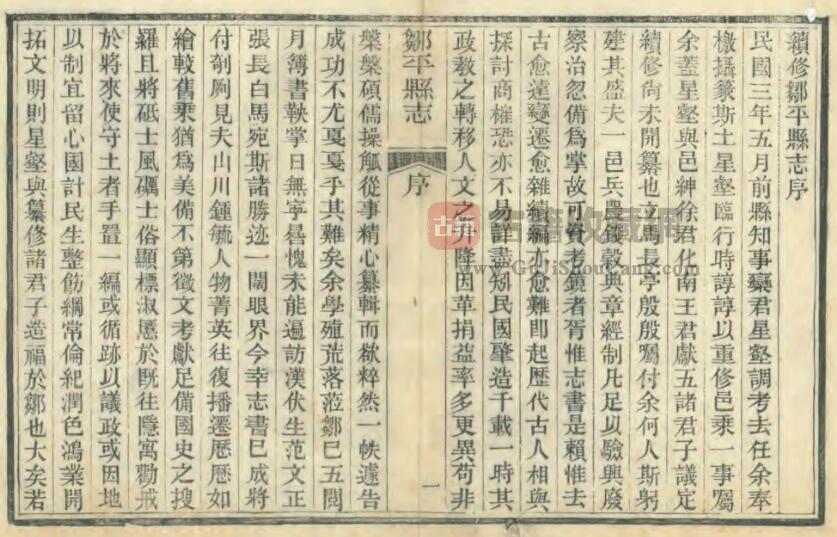 續修鄒平縣志序
民國三年五月前縣知事欒君星壑調考去任余奉
檄攝篆斯土星壑臨行時諄諄以重修邑乘一事屬
余蓋星壑與邑紳徐君化南王君獻五諸君子議定
續修尚未開纂也立馬長亭殷殷囑付余何人斯躬
建其盛夫一邑兵農錢穀典章經制凡足以驗興廢
察治忽備為掌故可資考鏡者胥惟志書是賴惟去
古愈遠變遷愈雜續編亦愈難即起歷代古人相與
探討商榷恐亦不易詳盡矧民國肇造千載一時其
政教之轉移人文之升降因革捐益率多更異苟非
鄒平縣志
序
一
槃槃碩儒操觚從事精心纂輯而欲粹然一帙遽告
成功不尤戛戛乎其難矣余學殖荒落蒞鄒已五閱
月簿書鞅掌日無寧晷愧未能遍訪漢伏生范文正
張長白馬宛斯諸勝迹一闊眼界今幸志書已成將
付剞劂見夫山川鍾毓人物菁英往復播遷歷歷如
繪較舊乘猶為美備不第徵文考獻足備國史之搜
羅且將砥士風礪士俗顯標淑慝於既往隱寓勸戒
於將來使守土者手置一編或循跡以議政或因地
以制宜留心國計民生整飭綱常倫紀潤色鴻業開
拓文明則星壑與纂修諸君子造福於鄒也大矣若
古籍
古籍收藏網
www.GuJiShouCang.com